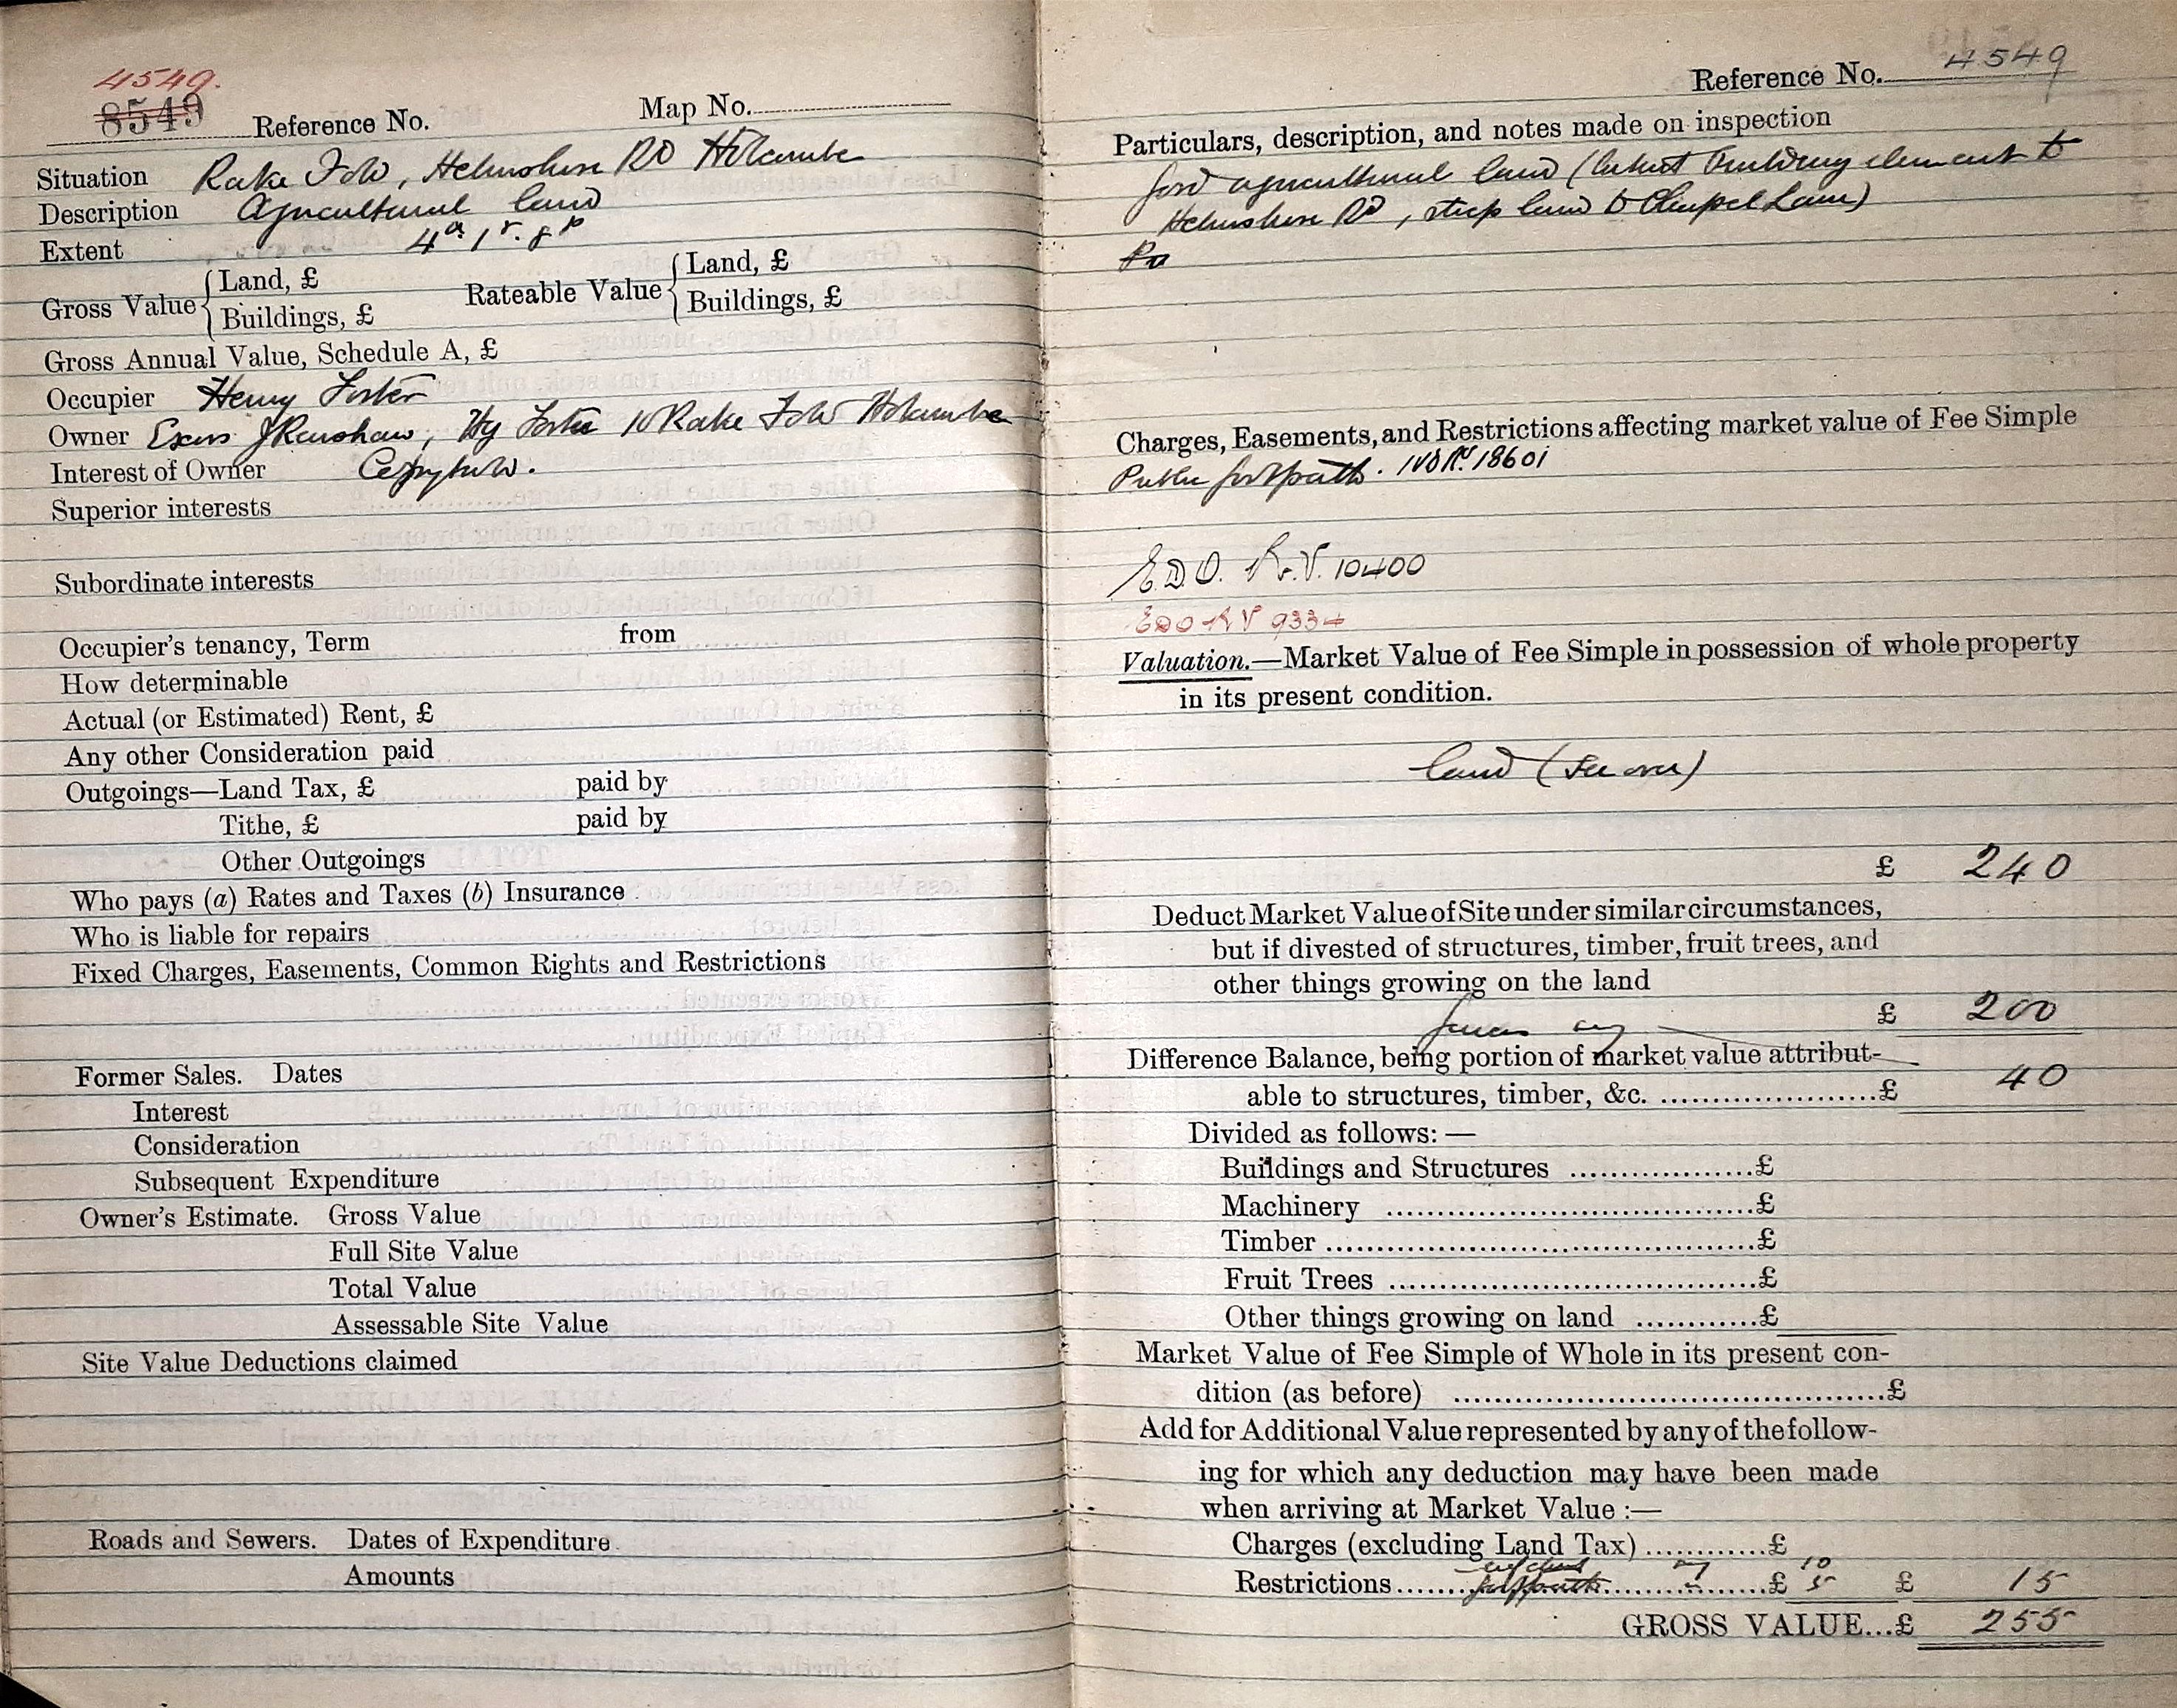 4549.
8549 Reference No. Map No.
Situation Rake Fold, Helmshore Rd Holcombe
Description Agricultural land
Extent 4a. 1r. 8p
Gross Value { Land, £ Rateable Value { Land, £
Buildings, £ Buildings, £
Gross Annual Value, Schedule A, £
Occupier Henry Foster
Owner Exors J Renshaw, Hy Foster 10 Rake Fold Holcombe
Interest of Owner Copyhold.
Superior interests
Subordinate interests
Occupier's tenancy, Term from
How determinable
Actual (or Estimated) Rent, £
Any other Consideration paid
Outgoings—Land Tax, £ paid by
Tithe, £ paid by
Other Outgoings
Who pays (a) Rates and Taxes (b) Insurance
Who is liable for repairs
Fixed Charges, Easements, Common Rights and Restrictions
Former Sales. Dates
Interest
Consideration
Subsequent Expenditure
Owner's Estimate. Gross Value
Full Site Value
Total Value
Assessable Site Value
Site Value Deductions claimed
Roads and Sewers. Dates of Expenditure
Amounts
Reference No. 4549
Particulars, description, and notes made on inspection
agricultural land ( building element to
Helmshore Rd, steep land to Chapel Lane)
Charges, Easements, and Restrictions affecting market value of Fee Simple
Public footpath. 18601
E.D.O. R.V. 10400
EDO RV 9334
Valuation.—Market Value of Fee Simple in possession of whole property
in its present condition.
land (see over)
£ 240
Deduct Market Value of Site under similar circumstances,
but if divested of structures, timber, fruit trees, and
other things growing on the land
£ 200
Difference Balance, being portion of market value attribut-
able to structures, timber, &c. £ 40
Divided as follows:—
Buildings and Structures £
Machinery £
Timber £
Fruit Trees £
Other things growing on land £
Market Value of Fee Simple of Whole in its present con-
dition (as before) £
Add for Additional Value represented by any of the follow-
ing for which any deduction may have been made
when arriving at Market Value :—
Charges (excluding Land Tax) £
10
Restrictions footpath £ 5 £ 15
GROSS VALUE...£ 255